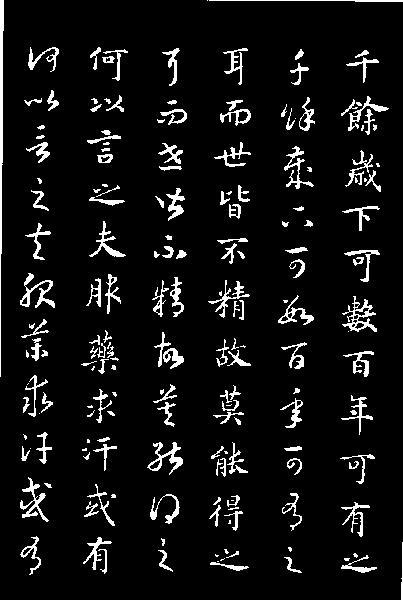 千餘歲下可數百年可有之
千餘歲下可數百年可有之
耳而世皆不精故莫能得之
耳而世皆不精故莫能得之
何以言之夫服藥求汗或有
何以言之夫服藥求汗或有